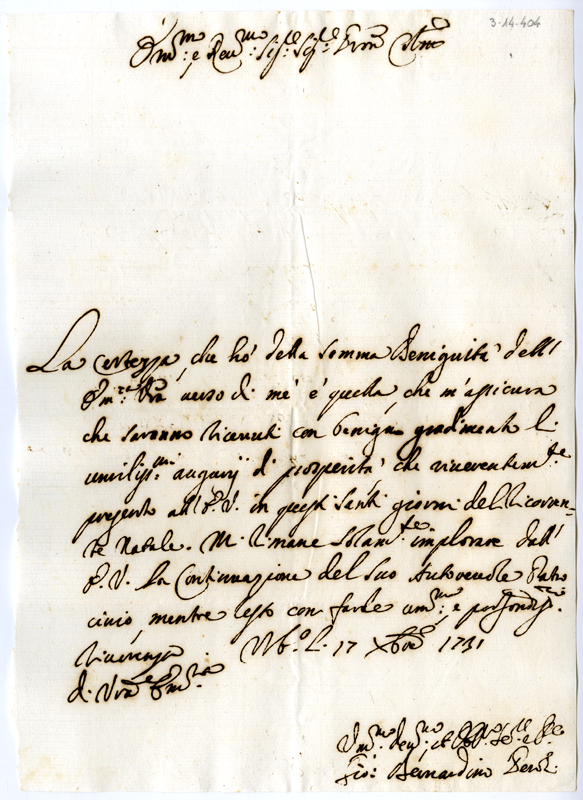 3-14-404
Em.mo e Rev.mo Sig.r Sig.r Pron Col.mo
La certezza, che hò della somma Benignità dell'
Em.za Vra verso di me è quella, che m'assicura
che saranno ricevuti con benigno gradimento li
umiliss.mi augurij di prosperità che riverentem.te
presento all'E. V. in questi Santi giorni del ricoren-
te Natale. Mi rimane solam.te implorare dall'
E. V. la Continuazione del suo Autorevole Patro
cinio, mentre resto con farle um.ma e profondiss.
riverenza 17 Xbre 1731
di Vra Em.za
Um.mo dev.mo et
Gio: Bernardino